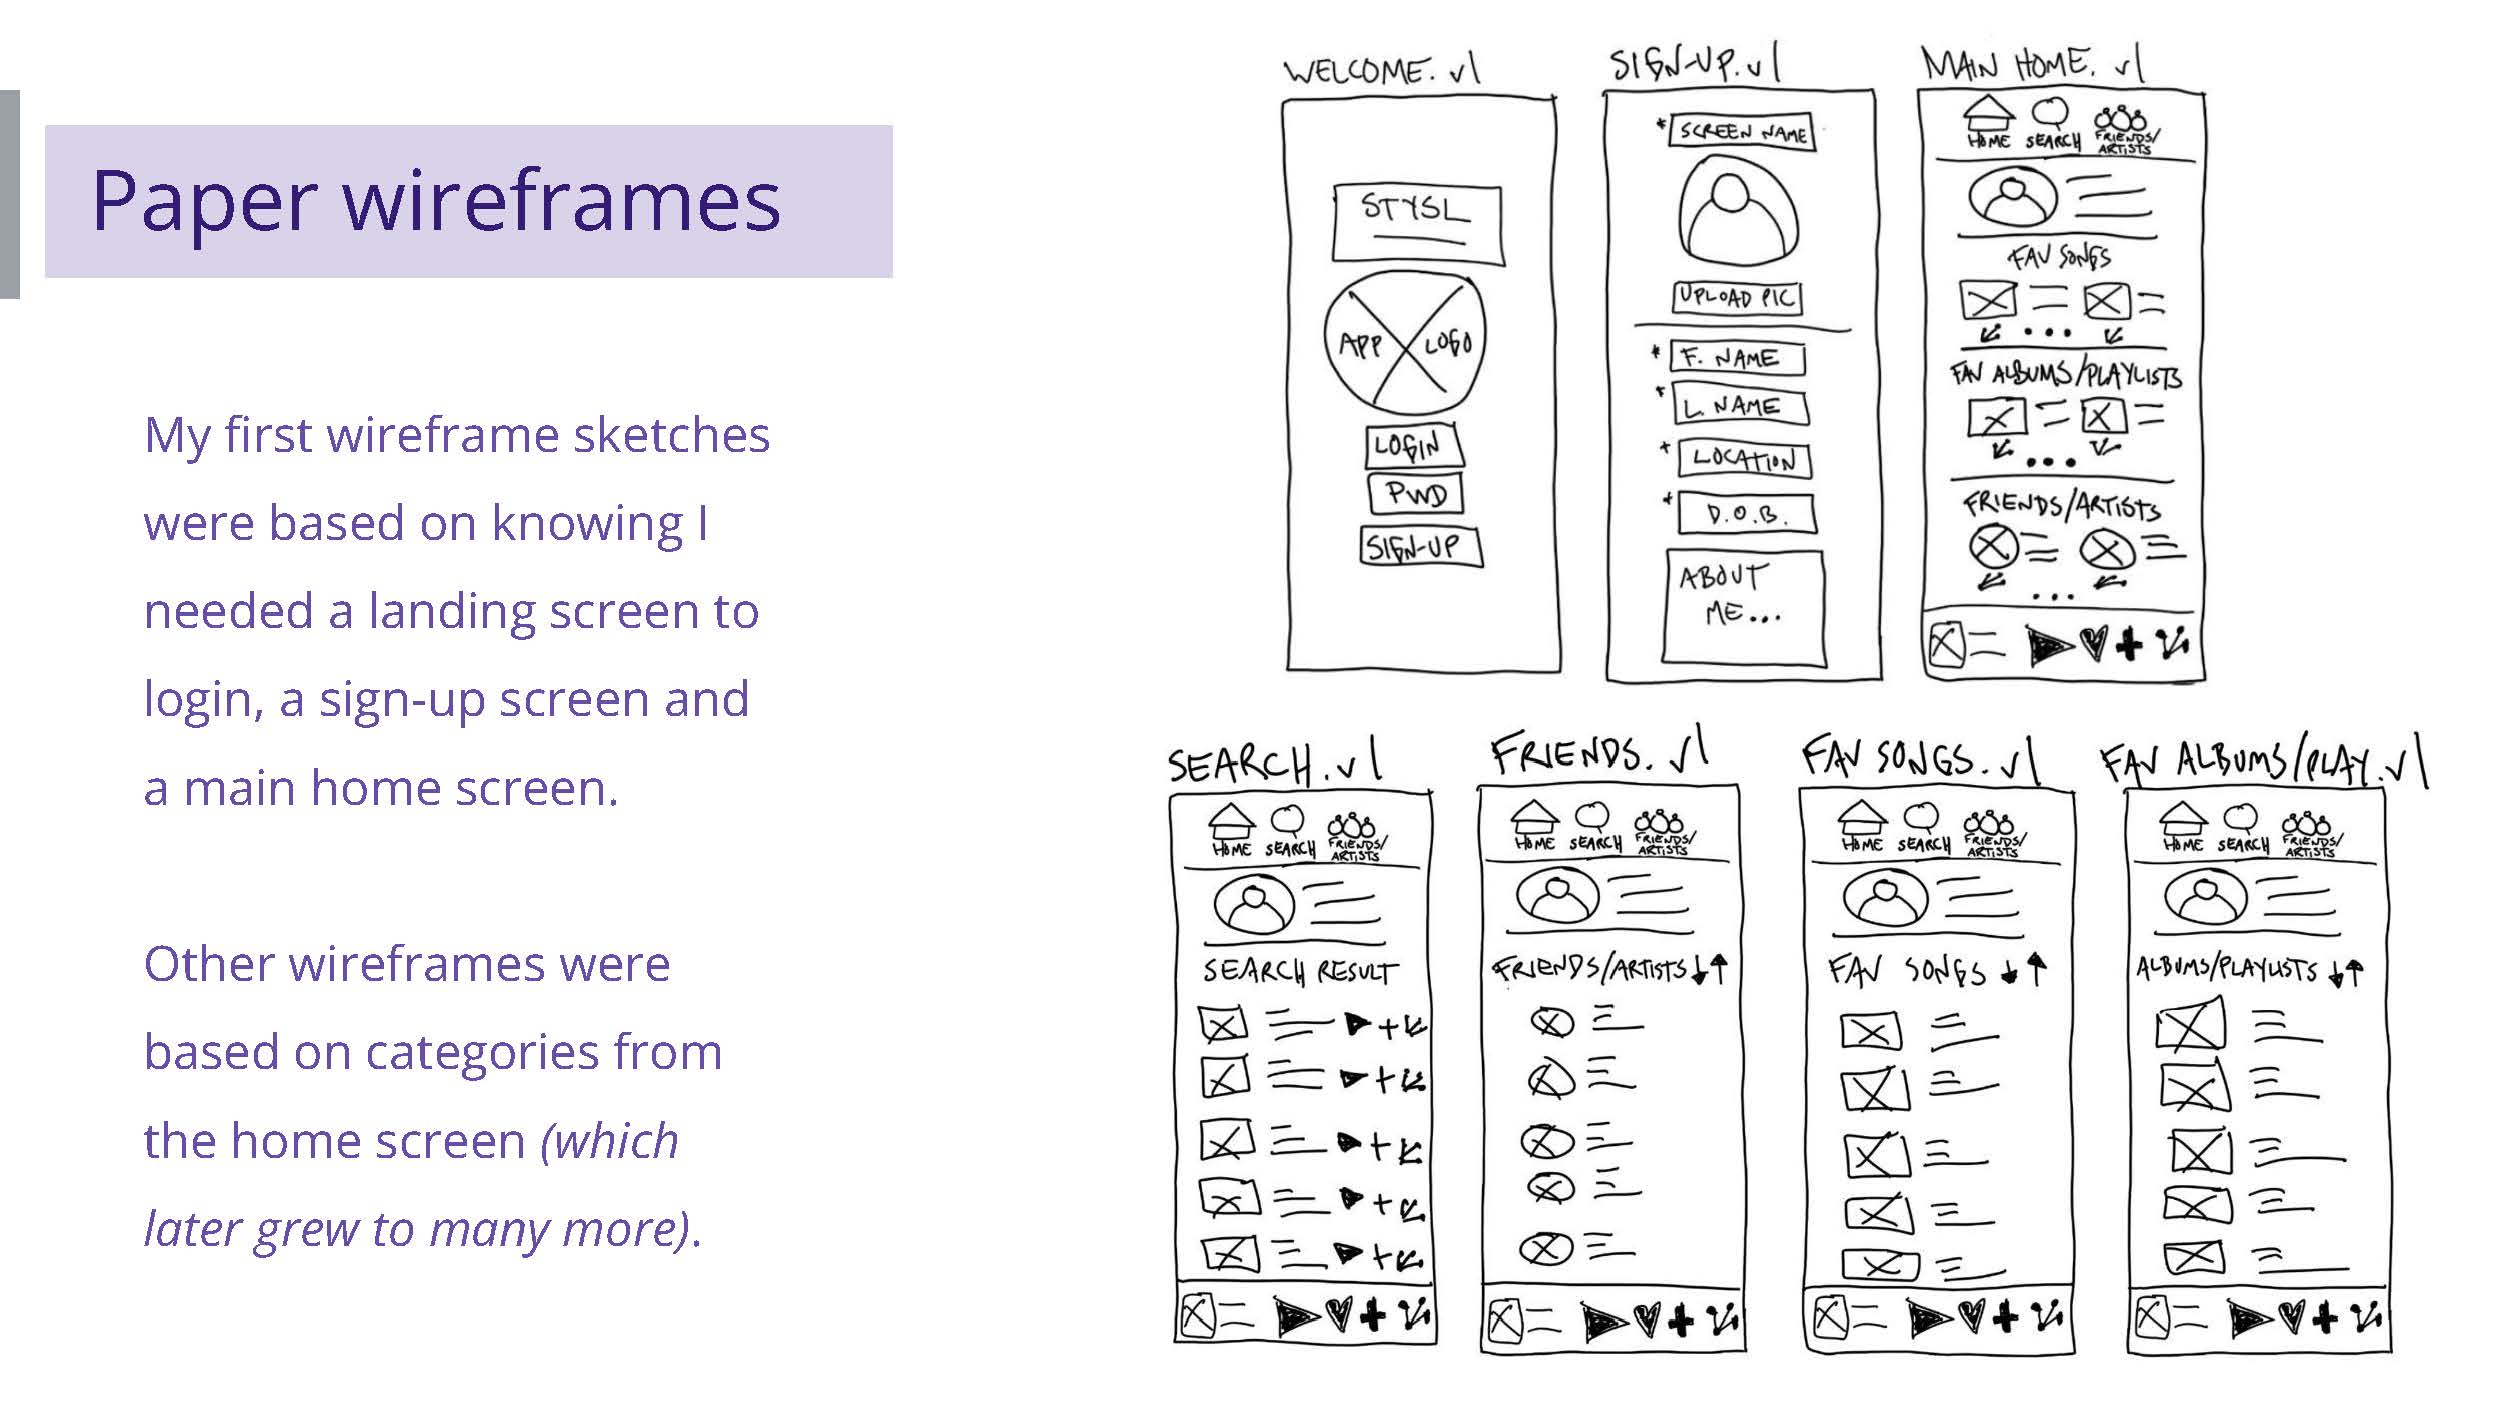 Paper wireframes
My first wireframe sketches
were based on knowing I
needed a landing screen to
login, a sign-up screen and
a main home screen.
Other wireframes were
based on categories from
the home screen (which
later grew to many more).
WELCOME. v1
STYSL
APP LOGO
LOGIN
PWD
SIGN-UP
SIGN-UP. v1
* SCREEN NAME
UPLOAD PIC
* F. NAME
* L. NAME
* LOCATION
* D.O.B.
ABOUT
ME...
MAIN HOME. v1
HOME SEARCH FRIENDS/
ARTISTS
FAV SONGS
...
FAV ALBUMS/PLAYLISTS
...
FRIENDS/ARTISTS
...
SEARCH. v1
HOME SEARCH FRIENDS/
ARTISTS
SEARCH RESULT
FRIENDS. v1
HOME SEARCH FRIENDS/
ARTISTS
FRIENDS/ARTISTS ↓↑
FAV SONGS. v1
HOME SEARCH FRIENDS/
ARTISTS
FAV SONGS ↓↑
FAV ALBUMS/PLAY. v1
HOME SEARCH FRIENDS/
ARTISTS
ALBUMS/PLAYLISTS ↓↑